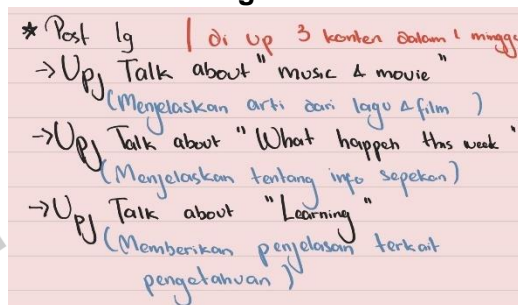 * Post Ig | di up 3 konten dalam 1 minggu
→ UPJ Talk about "music & movie"
(Menjelaskan arti dari lagu & film )
→ UPJ Talk about "What happen this week"
(Menjelaskan tentang info sepekan)
→ UPJ Talk about "Learning"
(Memberikan penjelasan terkait
pengetahuan )